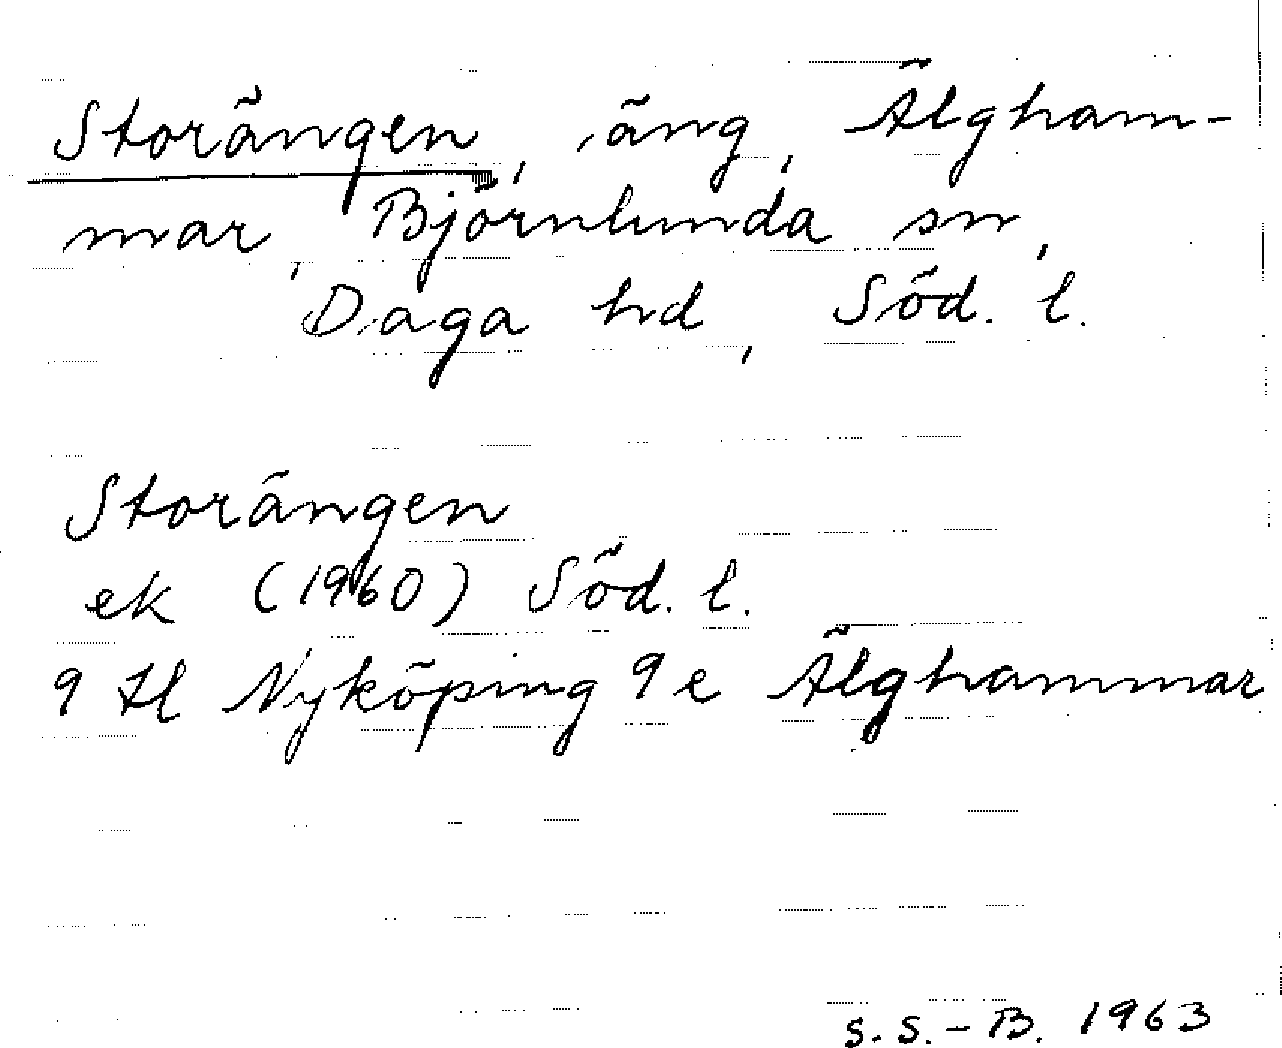 Storängen, äng, Älgham-
mar, Björnlunda sn,
Daga hd, Söd. l.
Storängen
ek (1960) Söd. l.
9 H Nyköping 9 e Älghammar
S. S. - B. 1963